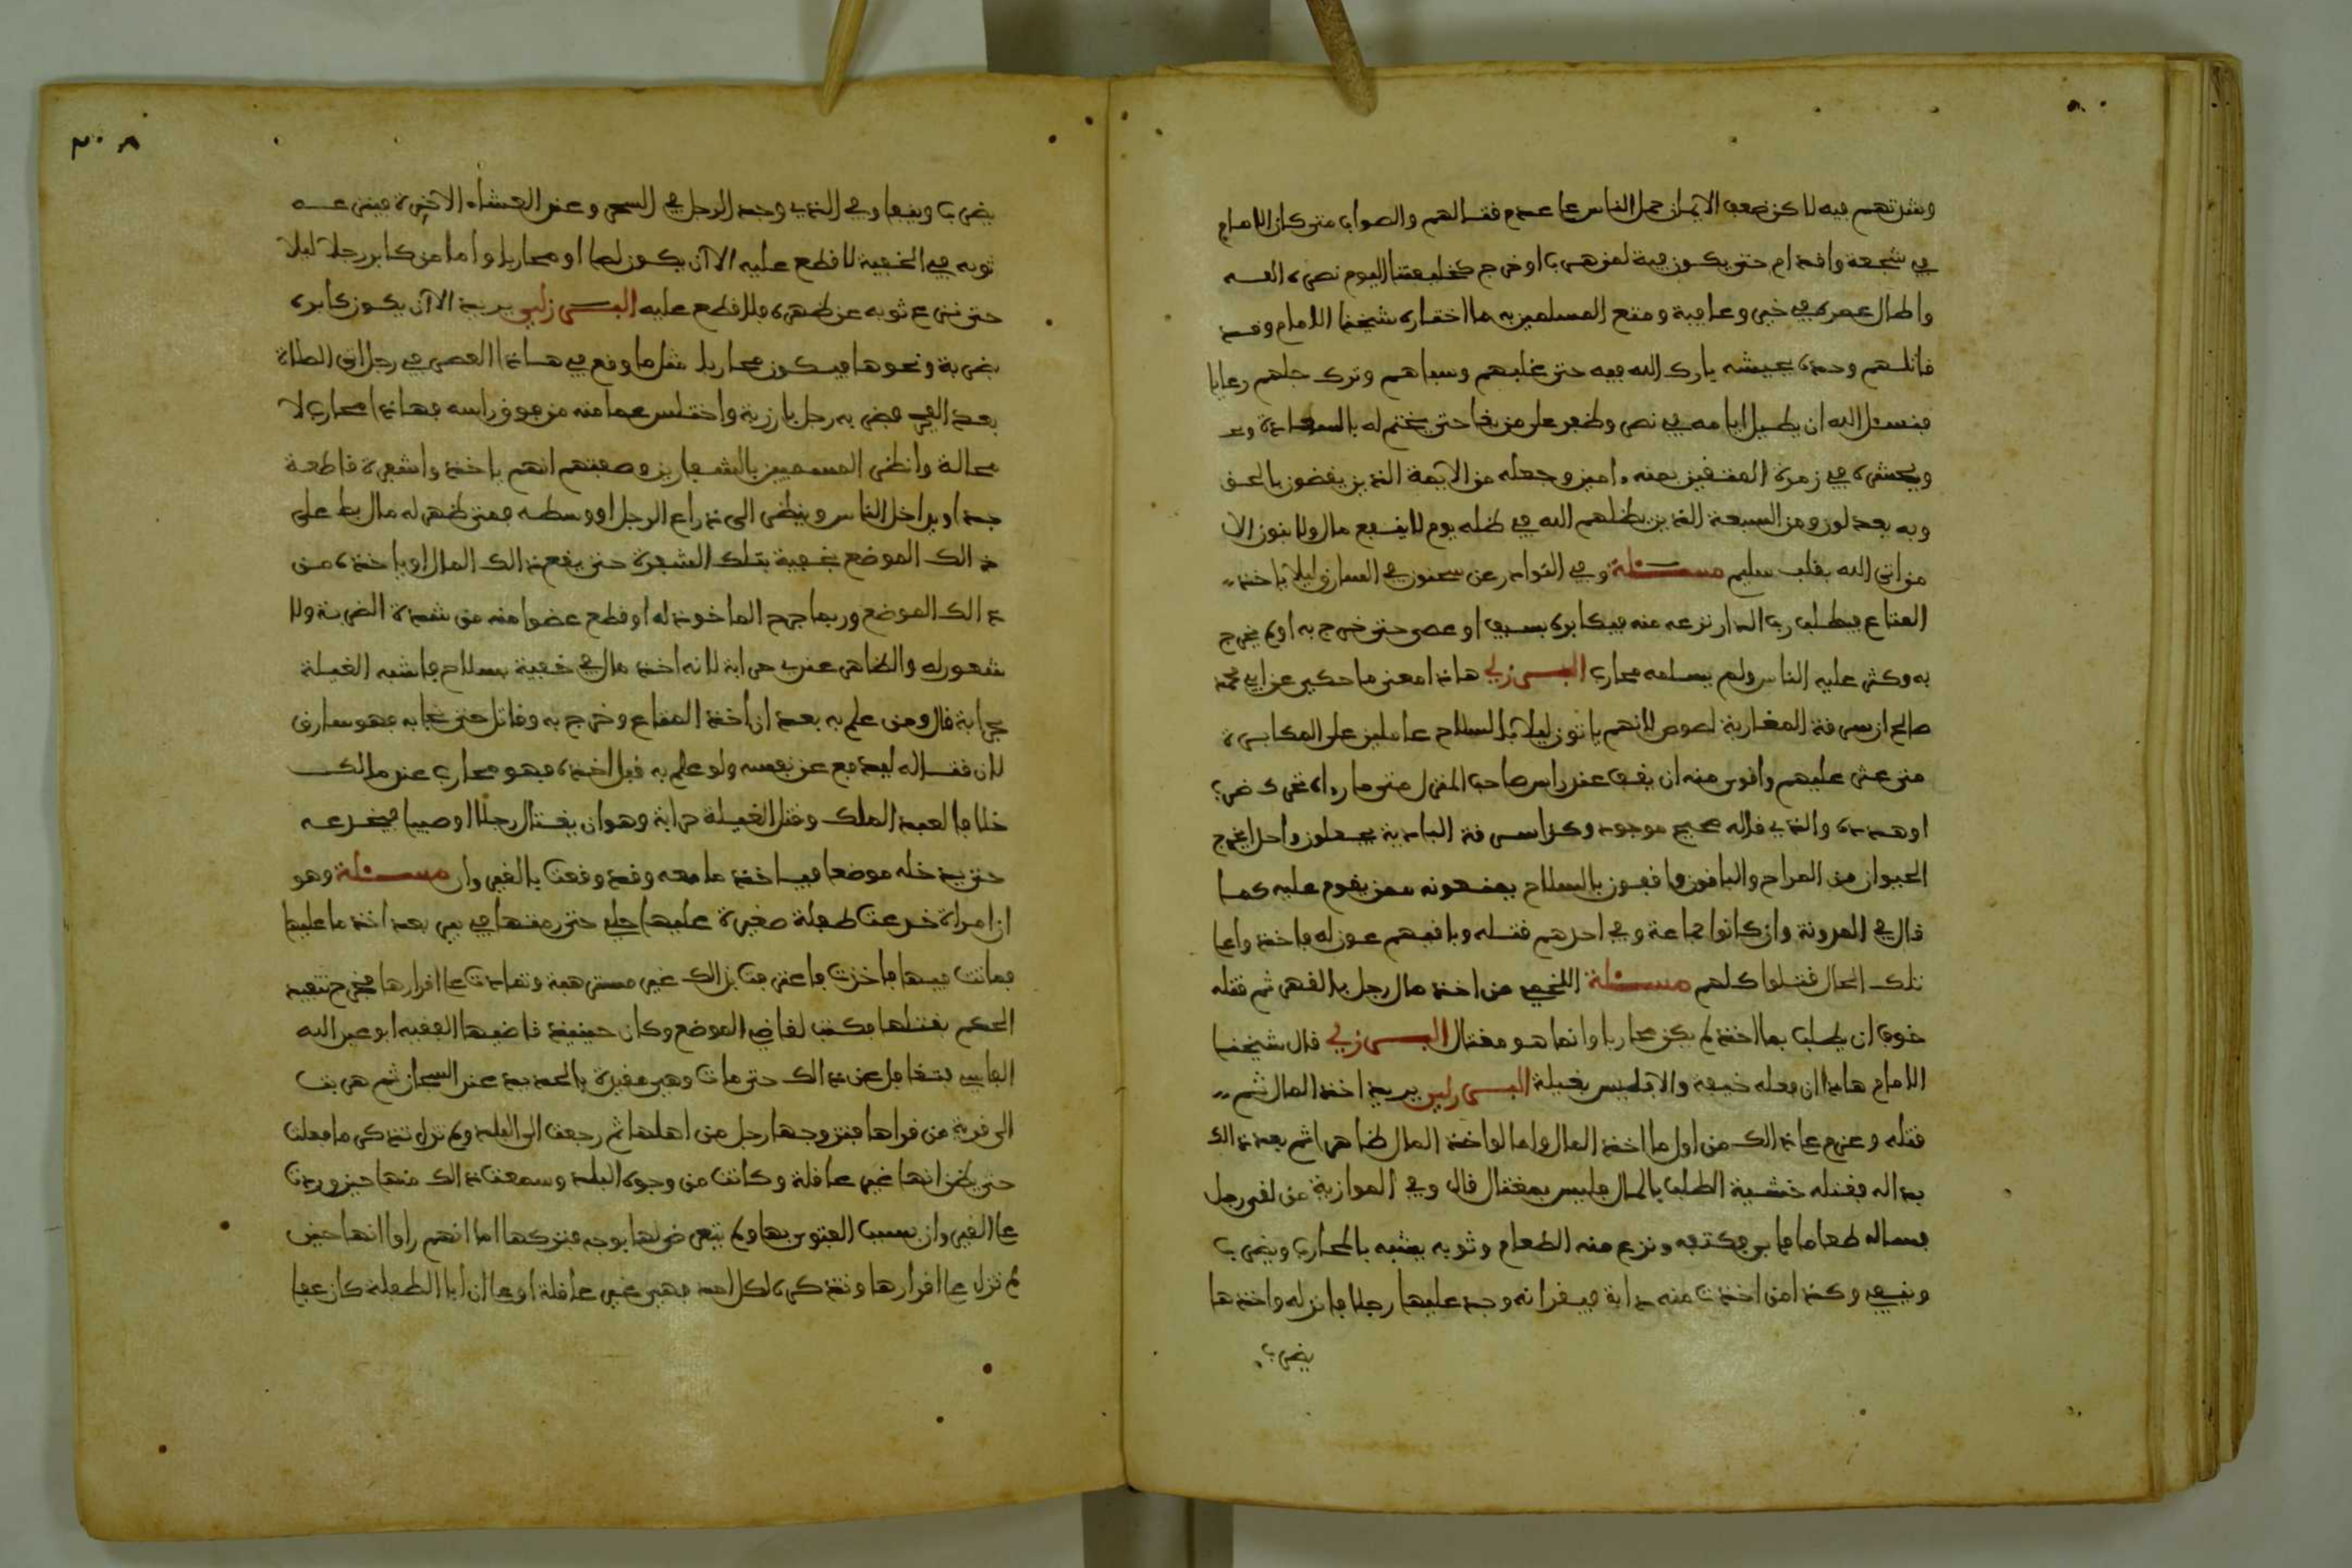 وشدتهم فيه لاكن ضعف الايمان حمل الناس على عدم قتالهم والصواب متى كان الامام
في شجعة واقدام حتى يكون فية لمن هرب او خرج كخليفتنا اليوم نصره الله
واطال عمره في خير وعافية ومتع المسلمين به ما اختاره شيخنا الامام وقد
قاتلهم وحده بجيشه بارك الله فيه حتى غلبهم وسباهم وترك جلهم رعايا
فنسئل الله ان يطيل ايامه في نصر وظفر على من بغا حتى يختم له بالسعادة
ويحشره في زمرة المتقين بمنه ءامين وجعله من الايمة الذين يقضون بالحق
وبه يعدلون ومن السبعة الذين يظلهم الله في ظله يوم لا ينفع مال ولا بنون الا
من اتى الله بقلب سليم مسئلة وفي النوادر عن سحنون في السارق ليلا ياخذ
المتاع فيطلب رب الدار نزعه منه فيكابره بسيف او عصى حتى خرج به او لم يخرج
به وكثر عليه الناس ولم يسلمه محارب البرزلي هاذا معنى ما حكير عن ابي محمد
صالح ان سرقة المغاربة لصوص لانهم ياتون ليلا بالسلاح عاملين على المكابرة
متى عثر عليهم واقوى منه ان يقف عند راس صاحب المنزل متى ما رءاه تحرك ضربه
او هدده والذي قاله صحيح موجود وكذا سرقة البادية يجعلون واحدا يخرج
الحيوان من المراح والباقون واقفون بالسلاح يمنعونه ممن يقوم عليه كما
قال في المدونة وان كانوا جماعة وفي احدهم قتله وباقيهم عون له فاخذوا على
تلك الحال قتلوا كلهم مسئلة اللخمي من اخذ مال رجل بالقهر ثم قتله
خوف ان يطلب بما اخذ لم يكن محاربا وانما هو مغتال البرزلي قال شيخنا
الامام هاذا ان فعله خيفة والا فليس بغيلة البرزلي يريد اخذ المال ثم
قتله وعزم على ذالك من اول ما اخذ المال واما لو اخذ المال ظاهرا ثم بعد ذالك
بدا له فقتله خشية الطلب بالمال فليس بمغتال قال وفي الموازية من لقى رجلا
فساله طعاما فابى فكتفه ونزع منه الطعام وثوبه يشبه بالمحارب ويضرب
وينفى وكذا من اخذت منه دابة فيقر انه وجد عليها رجلا فانزله واخذها
يضرب
٣٠٨
يضرب وينفا وفي الذي وجد الرجل في السحر وعند العشاء الاخيرة فينزعه
ثوبه في الخفية لا قطع عليه الا ان يكون لصا او محاربا واما من كابر رجلا ليلا
حتى نزع ثوبه عن ظهره فلا قطع عليه البرزلي يريد الا ان يكون كابره
بضربة ونحوها فيكون محاربا مثل ما وقع في هاذا العصر في رجل اتى الصلاة
بعد الفجر فضربه رجل بارزبة واختلس عمامته من فوق راسه فهاذا محارب لا
محالة وانظر المسميين بالشفارين وصفتهم انهم ياخذوا شفرة قاطعة
جدا ويداخل الناس وينظر الى ذراع الرجل او وسطه فمتى ظهر له مال بط على
ذالك الموضع بخفية بتلك الشفرة حتى يقع ذالك المال او ياخذه من
ذالك الموضع وربما جرح الماخوذ له او قطع عضوا منه من شدة الضربة ولا
شعور له والظاهر عندي حرابة لانه اخذ مال في خفية بسلاح فاشبه الغيلة
حرابة قال ومن علم به بعد ان اخذ المتاع وخرج به وقاتل حتى نجا به فهو سارق
لان قتاله ليدفع عن نفسه ولو علم به قبل اخذه فهو محارب عند مالك
خلافا لعبد الملك وقتل الغيلة حرابة وهو ان يغتال رجلا او صبيا فيخدعه
حتى يدخله موضعا فياخذ ما معه وقد وقعت بالقيروان مسئلة وهو
ان امراة خدعت طفلة صغيرة عليها حلي حتى رمتها في بير بعد اخذ ما عليها
فماتت فيها فاخذت فاعترفت بذالك غير مسترهبة وتمادت على اقرارها فخرج تنفيذ
الحكم بقتلها فكتب لقاضي الموضع وكان حينيذ قاضيها الفقيه ابو عبد الله
الفاسي فتغافل عن ذالك حتى مات وهي مقيدة بالحديد عند السجان ثم هربت
الى قرية من قراها فتزوجها رجل من اهلها ثم رجعت الى البلد ولم تزل تذكر ما فعلت
حتى يظن انها غير عاقلة وكانت من وجوه البلد وسمعت ذالك منها حين وردت
على القيروان بسبب الفتوى بها ولم نتعرض لها بوجه فتركها اما انهم راوا انها حين
لم تزل على اقرارها وتذكره لكل احد فهي غير عاقلة او على ان ابا الطفلة كان عفا